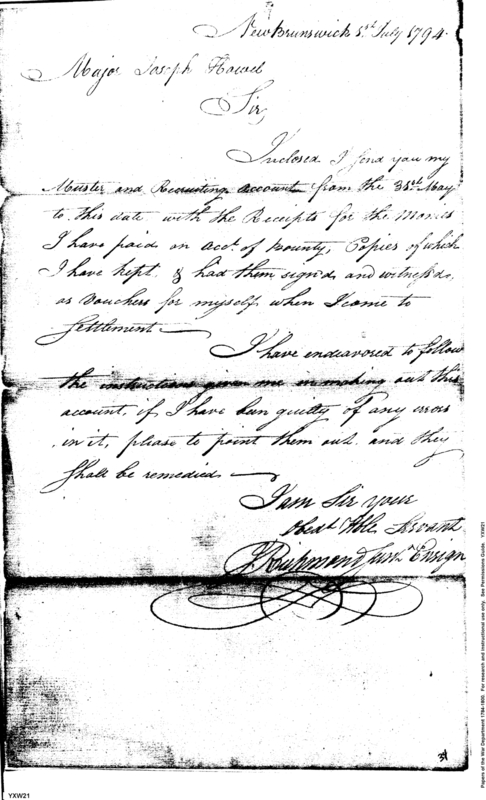 New Brunswick 1st July 1794
Major Joseph Howel
Sir,
Inclosed I send you my
Muster and Recruiting account from the 31st May
to this date with the Receipts for the Monies
I have paid on acct. of Bounty, Copies of which
I have kept & had them signd and witnessd
as Vouchers for myself when I come to
Settlement
I have endeavored to follow
the instructions given me in making out this
account, if I have ben guilty of any errors
in it, please to point them out and they
Shall be remedied
I am Sir your
Obedt Hble Servant
Richmond Ensign
YXW21
Papers of the War Department 1784-1800. For research and instructional use only. See Permissions Guide. YXW21